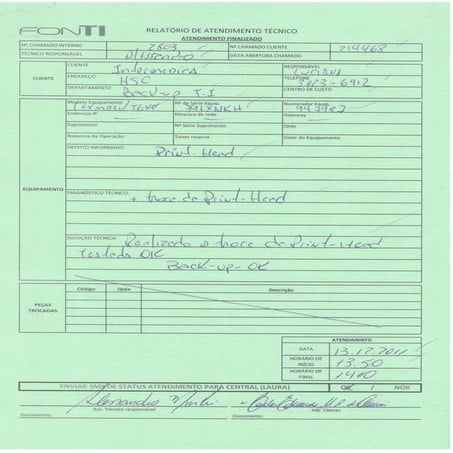 FONTI
RELATÓRIO DE ATENDIMENTO TÉCNICO
ATENDIMENTO FINALIZADO
Nº CHAMADO INTERNO 2803 Nº CHAMADO CLIENTE 214468
TÉCNICO RESPONSÁVEL DATA ABERTURA CHAMADO
CLIENTE
CLIENTE Intermedica RESPONSÁVEL
ENDEREÇO HSC TELEFONE 3323-6912
DEPARTAMENTO Back-up T.I CENTRO DE CUSTO
EQUIPAMENTO
Modelo Equipamento Nº de Série Equip. Numerador Equip.
Endereço IP Mascara de rede Gateway
Suprimento Nº Serie Suprimento. Qtde
Natureza da Operação Toner reserva Valor do Equipamento
DEFEITO INFORMADO:
Print-Head
DIAGNÓSTICO TÉCNICO:
troca de Print-Head
SOLUÇÃO TÉCNICA: Realizado a troca da Print-Head
Testado OK
Back-up-OK
PEÇAS TROCADAS
Código Qtde Descrição
ATENDIMENTO
DATA 13.12.2011
HORÁRIO DE INÍCIO 13:50
HORÁRIO DE FINAL 1400
ENVIAR SMS DE STATUS ATENDIMENTO PARA CENTRAL (LAURA) OK / NOK
Ass. Técnico responsável Ass. Cliente
Documento: Documento: